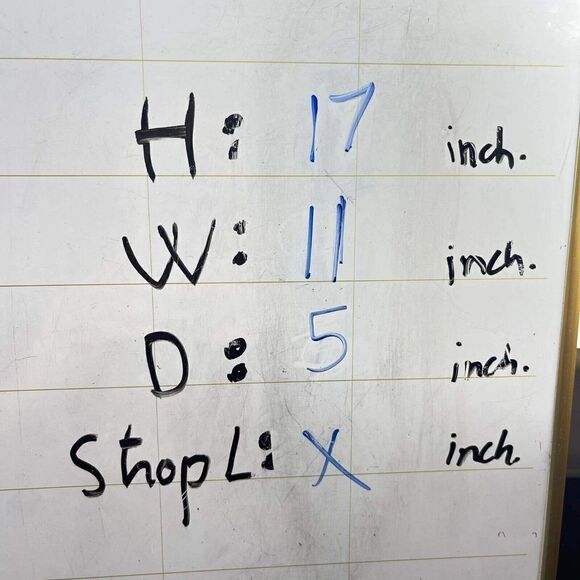 H: 17 inch.
W: 11 inch.
D: 5 inch.
Strop L: X inch.